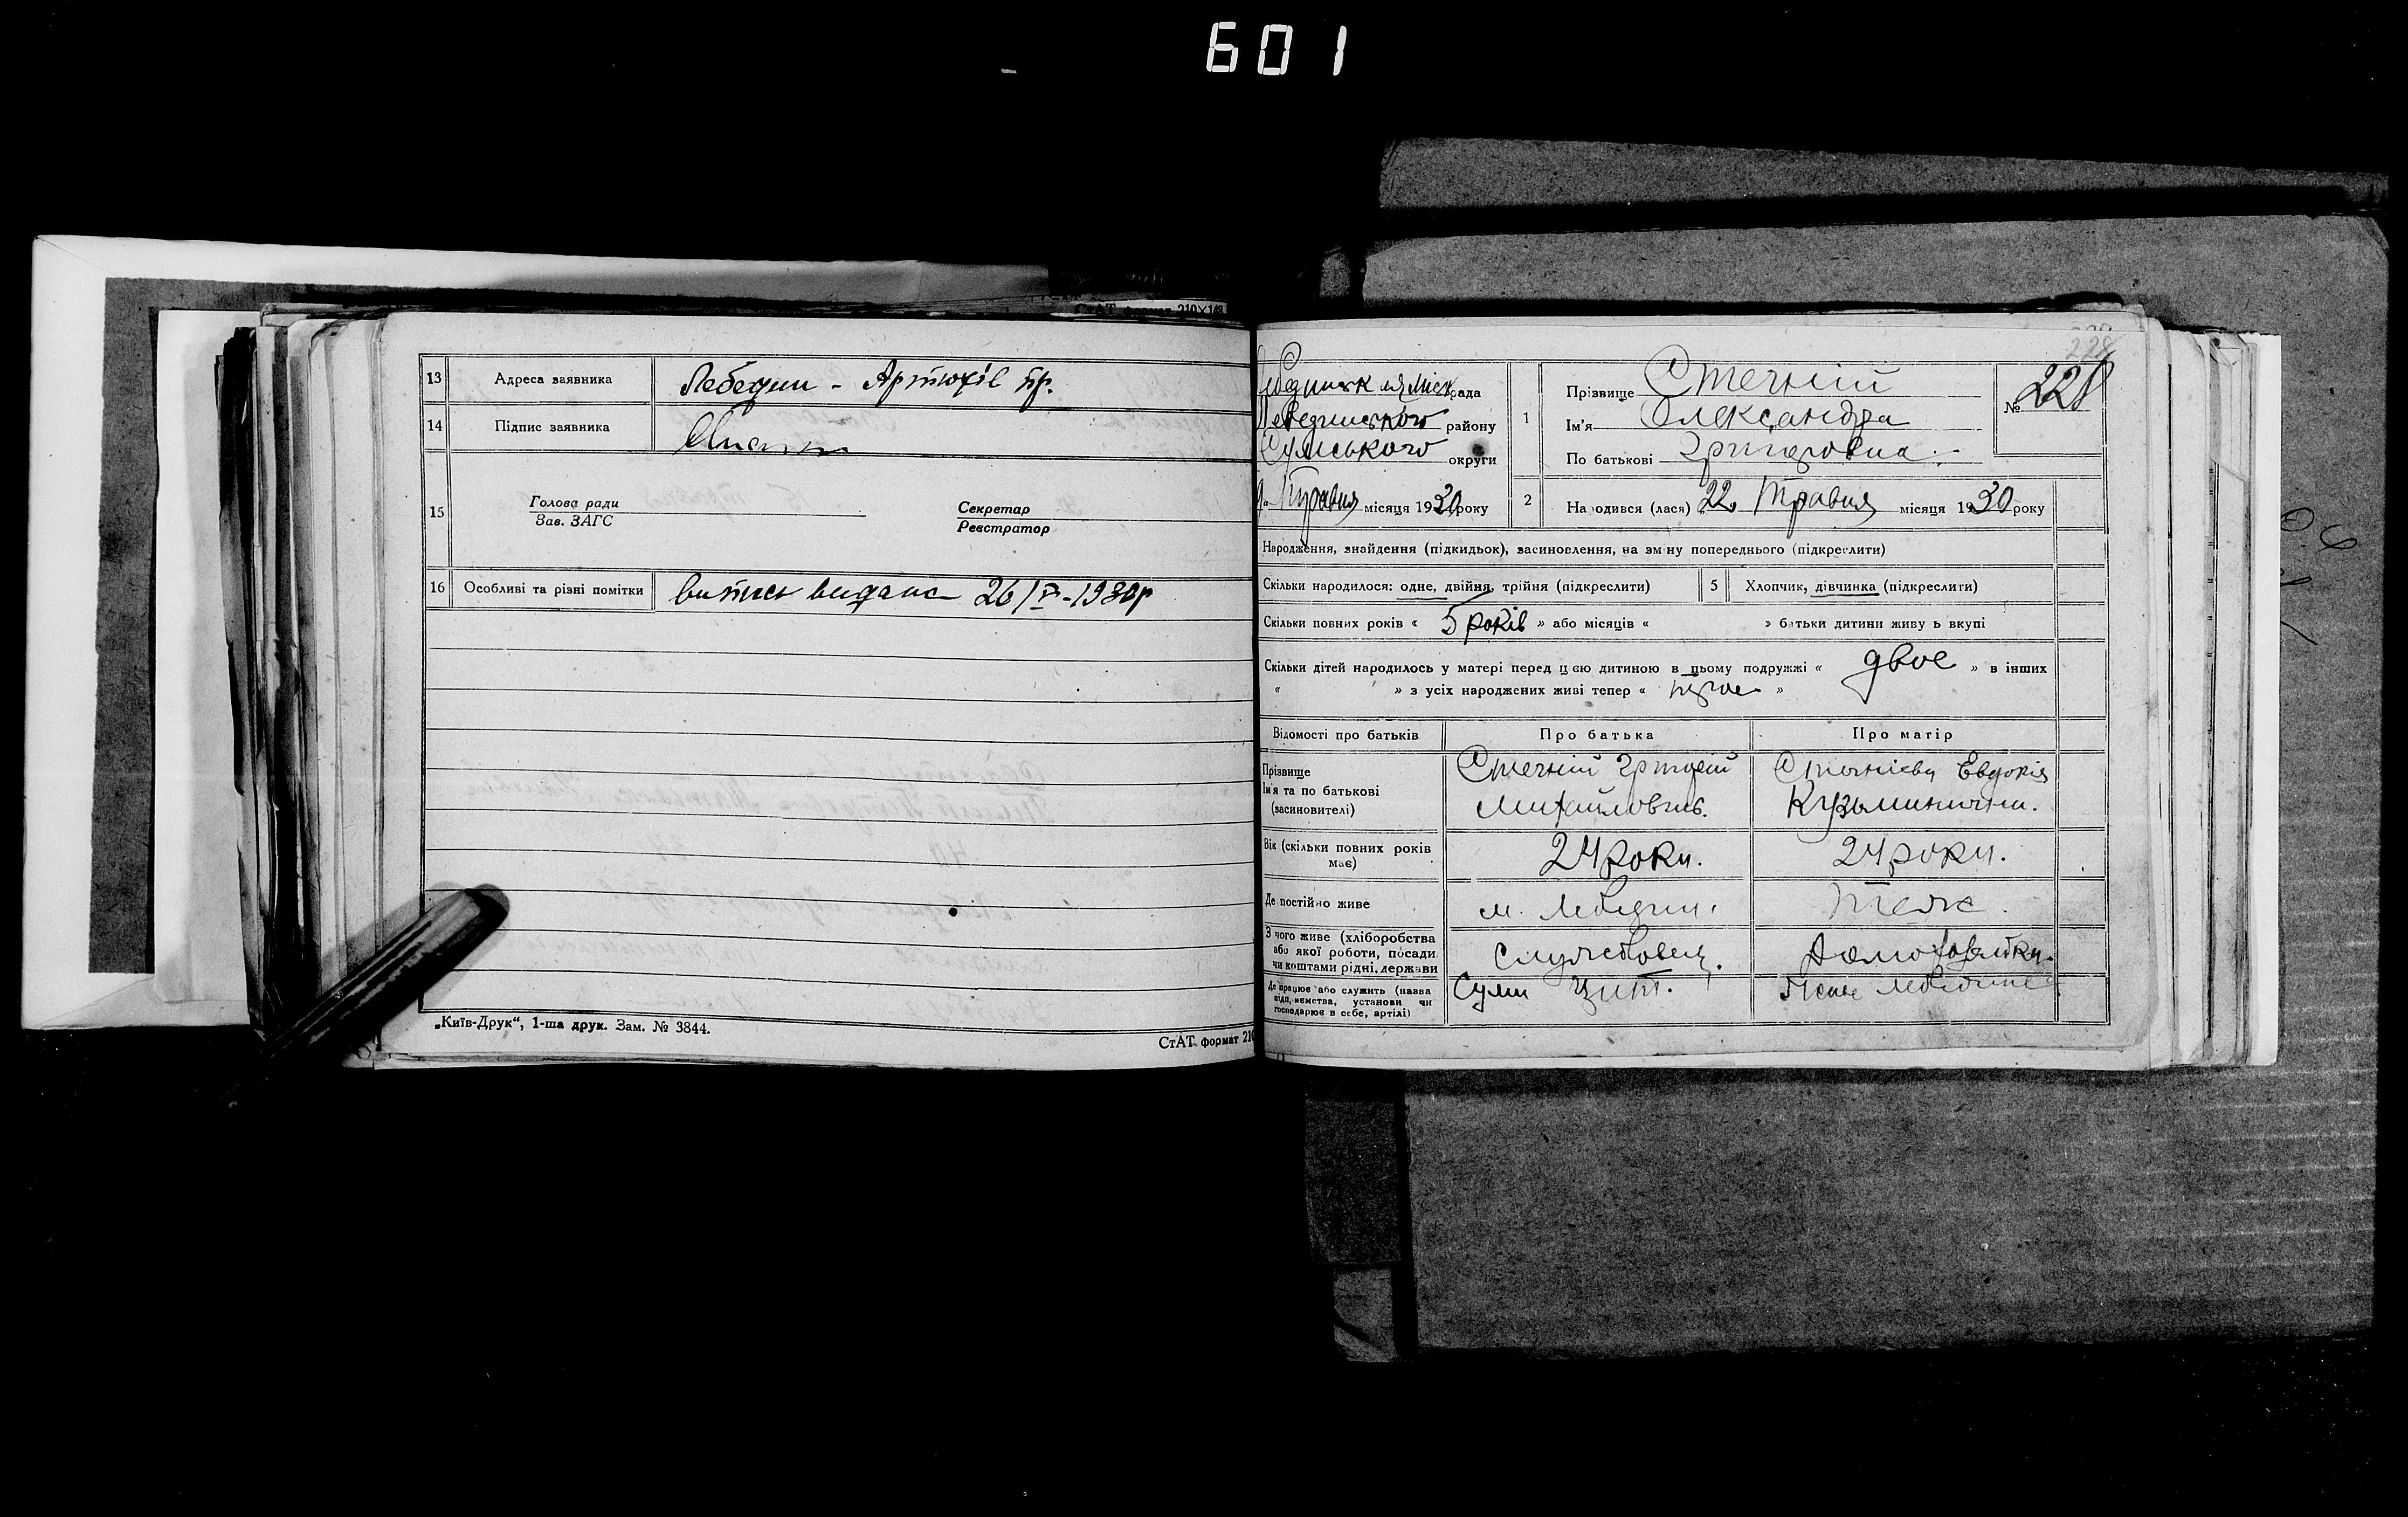 601
СтАТ формат 210×148
13 Адреса заявника Лебедин - Артюхів пр.
14 Підпис заявника
15 Голова ради
Зав. ЗАГС
Секретар
Реєстратор
16 Особливі та різні помітки витись видана 26/V-1930р
„Київ-Друк“, 1-ша друк. Зам. № 3844.
СтАТ формат 210
228
рада
Лебединського району
Сумського округи
Травня місяця 1930 року
1 Прізвище Стечній
Ім'я Олександра
По батькові Григоровна
№ 228
2 Народився (лася) „22„ Травня місяця 1930 року
Народження, знайдення (підкидьок), засиновлення, на зміну попереднього (підкреслити)
Скільки народилося: одне, двійня, трійня (підкреслити)
5 Хлопчик, дівчинка (підкреслити)
Скільки повних років « 5 років » або місяців « » батьки дитини живуть вкупі
Скільки дітей народилось у матері перед цією дитиною в цьому подружжі « двоє » в інших
« » з усіх народжених живі тепер « »
Відомості про батьків Про батька Про матір
Прізвище
Ім'я та по батькові
(засиновителі)
Стечній Григорій
Михайлович.
Євдокія
Кузьминична.
Вік (скільки повних років
має)
24 роки. 24 роки.
Де постійно живе м. Лебедин.
З чого живе (хліборобства
або якої роботи, посади
чи коштами рідні, держави
Службовець.
Де працює або служить (назва
підприємства, установи чи
господарює в себе, артілі)
Суми